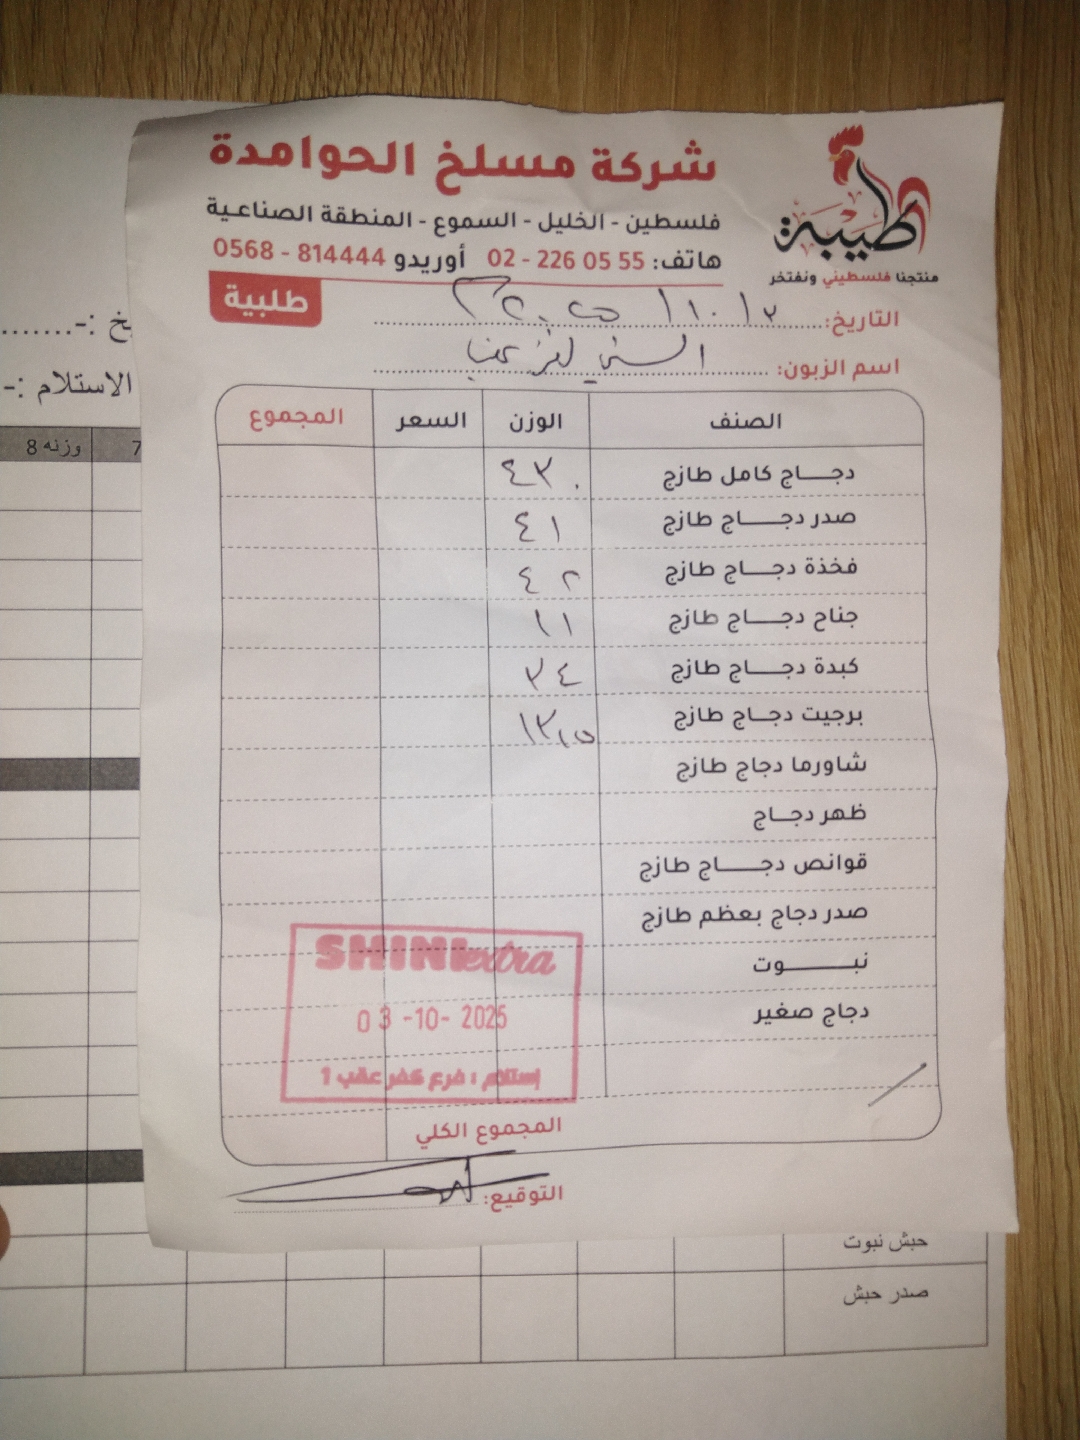 شركة مسلخ الحوامدة
فلسطين - الخليل - السموع - المنطقة الصناعية
هاتف: 02 - 226 05 55 أوريدو 0568 - 814444
طيبة
منتجنا فلسطيني ونفتخر
طلبية
التاريخ: ٣/١٠/٢٠٢٥
اسم الزبون: الشني كفر عقب
الصنف الوزن السعر المجموع
دجاج كامل طازج ٤٣٠
صدر دجاج طازج ٤١
فخذة دجاج طازج ٤٢
جناح دجاج طازج ١١
كبدة دجاج طازج ٣٤
برجيت دجاج طازج ١٣,٥
شاورما دجاج طازج
ظهر دجاج
قوانص دجاج طازج
صدر دجاج بعظم طازج
نبوت
دجاج صغير
SHINI extra
03-10-2025
إستلام : فرع كفر عقب 1
المجموع الكلي
التوقيع:
الاستلام :-
وزنه 8
7
حبش نبوت
صدر حبش